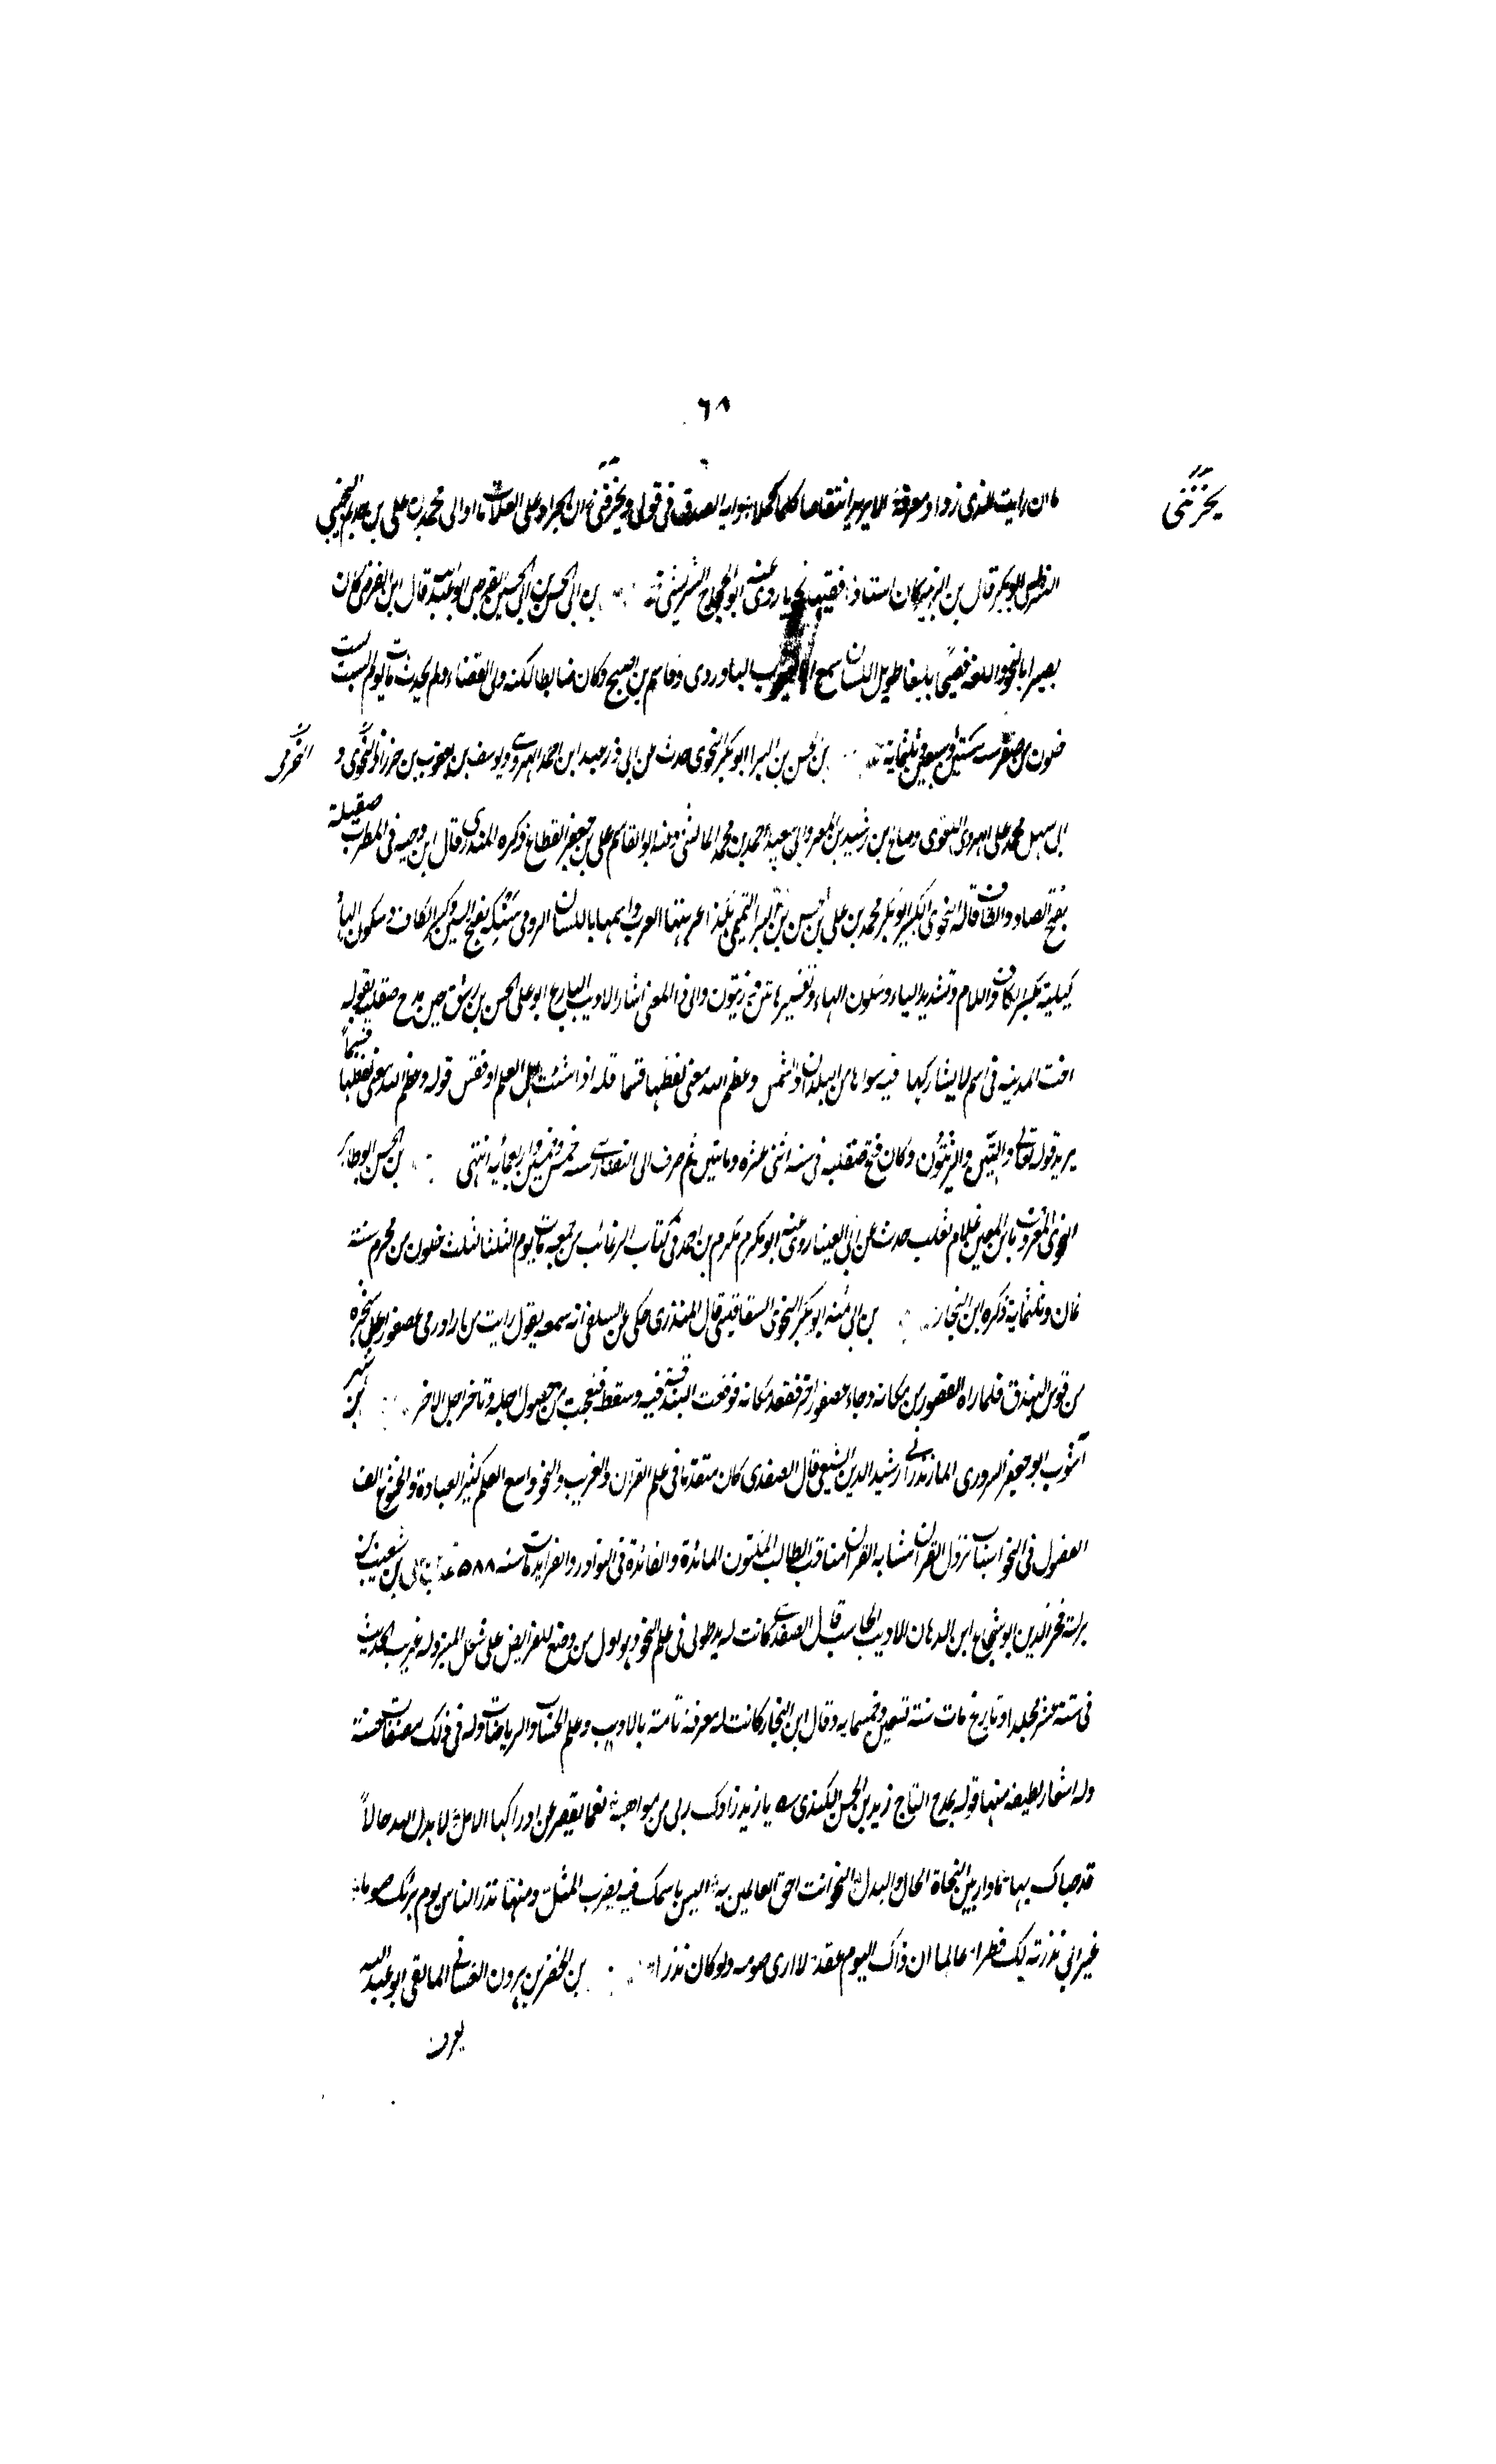 ٦٨
يحزنني
ما ان رايت الذي زواد معرفة الا يريد انتقاصا كلما كملا بنوابه الصدق في قولي ويحزنني ان الجراد على العلات ما اوالى محمد بن علي بن
ابو بكر قال بن الزبير كان استاذا فقيها نحويا روى عنه ابو الحجاج الشريشي بن ابي الحسن بن ابي الحسين القرطبي ابو عبد الله قال ابن الفرضي كان
بصيرا بالنحو واللغة فصيحا بليغا طويل اللسان سمع الباوردي وقاسم بن اصبغ وكان ضابطا لكتبه ولى القضاء ولم يحدث مات يوم السبت لست
خلون من صفر سنة اثنتين وسبعين وثلثماية بن الحسن بن البر ابو بكر النحوي حدث عن ابي ذر عبد ابن احمد الهروي ويوسف بن يعقوب بن خرزاذ النحوي و
ابي سهل محمد علي الهروي اللغوي وصالح بن رشيد بن المعر وابي سعيد احمد بن محمد الماليني وعنه ابو القاسم علي بن جعفر القطاع ذكره المنذري وقال ابن دحية في المطرب صقلية
بفتح الصاد والقاف قاله النحوي الكبير ابو بكر محمد بن علي بن الحسن بن البر التميمي هكذا عربتها العرب واسمها باللسان الرومي سكه بفتح السين وكسر الكاف وسكون الهاء
كيلية بكسر الكاف واللام وتشديد الياء وسكون الهاء وتفسير هاتين تين وزيتون والى هذا المعنى اشار الاديب البارع ابو علي الحسن بن رشيق حين مدح صقلية بقوله
اخت المدينة في اسم لا يشاركها فيه سواها من البلدان والتمس وعظم الله معنى لفظها قسما قله اذا شئت اهل العلم او فقس قوله وعظم الله معنى لفظها قسما
يريد قوله تعالى والتين والزيتون وكان فتح صقلية في سنة اثنتي عشرة ومايتين ثم صرف الى النصارى سنة خمس وخمسين واربعماية انتهى بن الحسن ابو طاهر
النحوي المعروف بابن المعين غلام ثعلب حدث عن ابي العينا روى عنه ابو مكرم مكرم بن احمد في كتاب الرغائب من جمعه مات يوم الثلثا لثلث خلون من محرم سنة
ثمان وثلثماية ذكره ابن النجار بن ابي مُنه ابو بكر النحوي السفاقسي قال المنذري حكى عن السلفي انه سمعه يقول رايت من باراد رمى عصفورا على شجرة
من قوس البندق فلما راه العصفور بن مكانه وجاء عصفور اخر فقعد مكانه فوقعت البندقة فيه وسقط فتعجبت من حصول اجله وتاخر اجل الاخر بن شهر
آشوب ابو جعفر السروري المازندراني رشيد الدين الشيعي قال الصفدي كان متقدما في علم القران والغريب والنحو واسع العلم كثير العبادة والخشوع الف
الفصول في النحو اسباب نزول القران متشابه القران مناقب الطالب المكنون المائدة والفائدة في النوادر والفرايد مات سنة ٥٨٨ بن علي بن شعيب بن
بركة فخر الدين ابو شجاع ابن الدهان الاديب الحاسب قال الصفدي كانت له يد طولى في علم النحو وهو اول من وضع الفرايض على شكل المنبر وله غريب الحديث
في ستة عشر مجلدا وتاريخ مات سنة تسعين وخمسماية وقال ابن النجار كانت له معرفة تامة بالادب وعلم الحساب والرياضات وله في ذلك مصنفات حسنة
وله اشعار لطيفة منها قوله يمدح التاج زيد بن الحسن الكندي يا زيد زادك ربي من مواهبه نعما يقصر عن ادراكها الامل لا بدل الله حالاً
قد حباك بها ما دار بين النحاة الحال والبدل النحو انت احق العالمين به اليس باسمك فيه يضرب المثل ومنها نذر الناس يوم برئك صوما
غير اني نذرته لك فطرا عالما ان ذاك اليوم عقد لا ارى صومه ولو كان نذرا بن الخضر بن هرون الغساني المالقي ابو عبد الله
يعرف